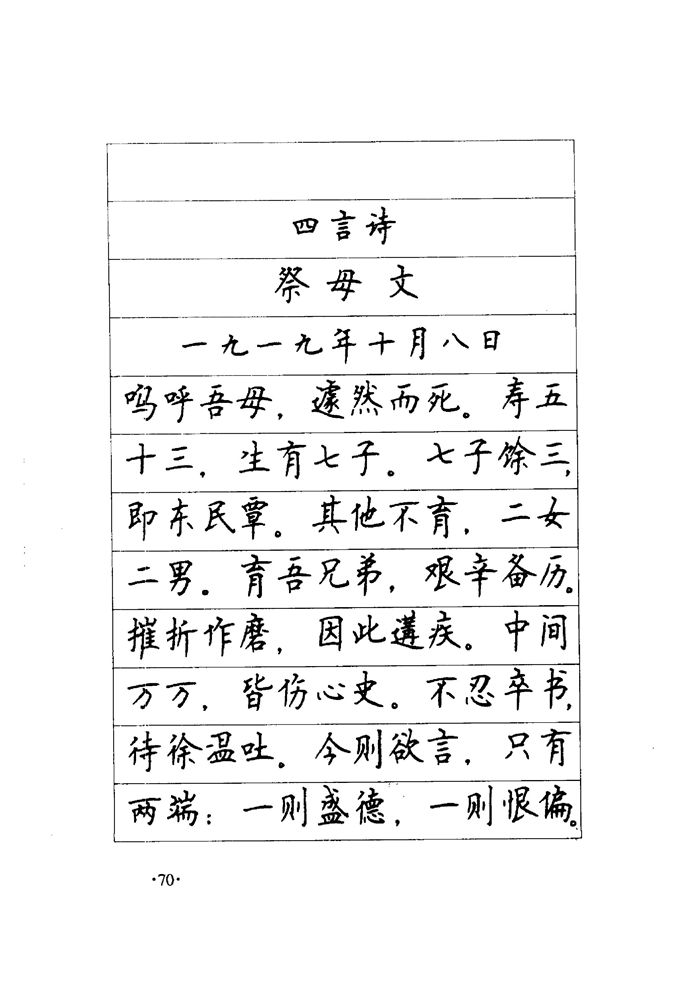 四言诗
祭母文
一九一九年十月八日
呜呼吾母，遽然而死。寿五
十三，生有七子。七子馀三，
即东民覃。其他不育，二女
二男。育吾兄弟，艰辛备历。
摧折作磨，因此遘疾。中间
万万，皆伤心史。不忍卒书，
待徐温吐。今则欲言，只有
两端：一则盛德，一则恨偏。
·70·